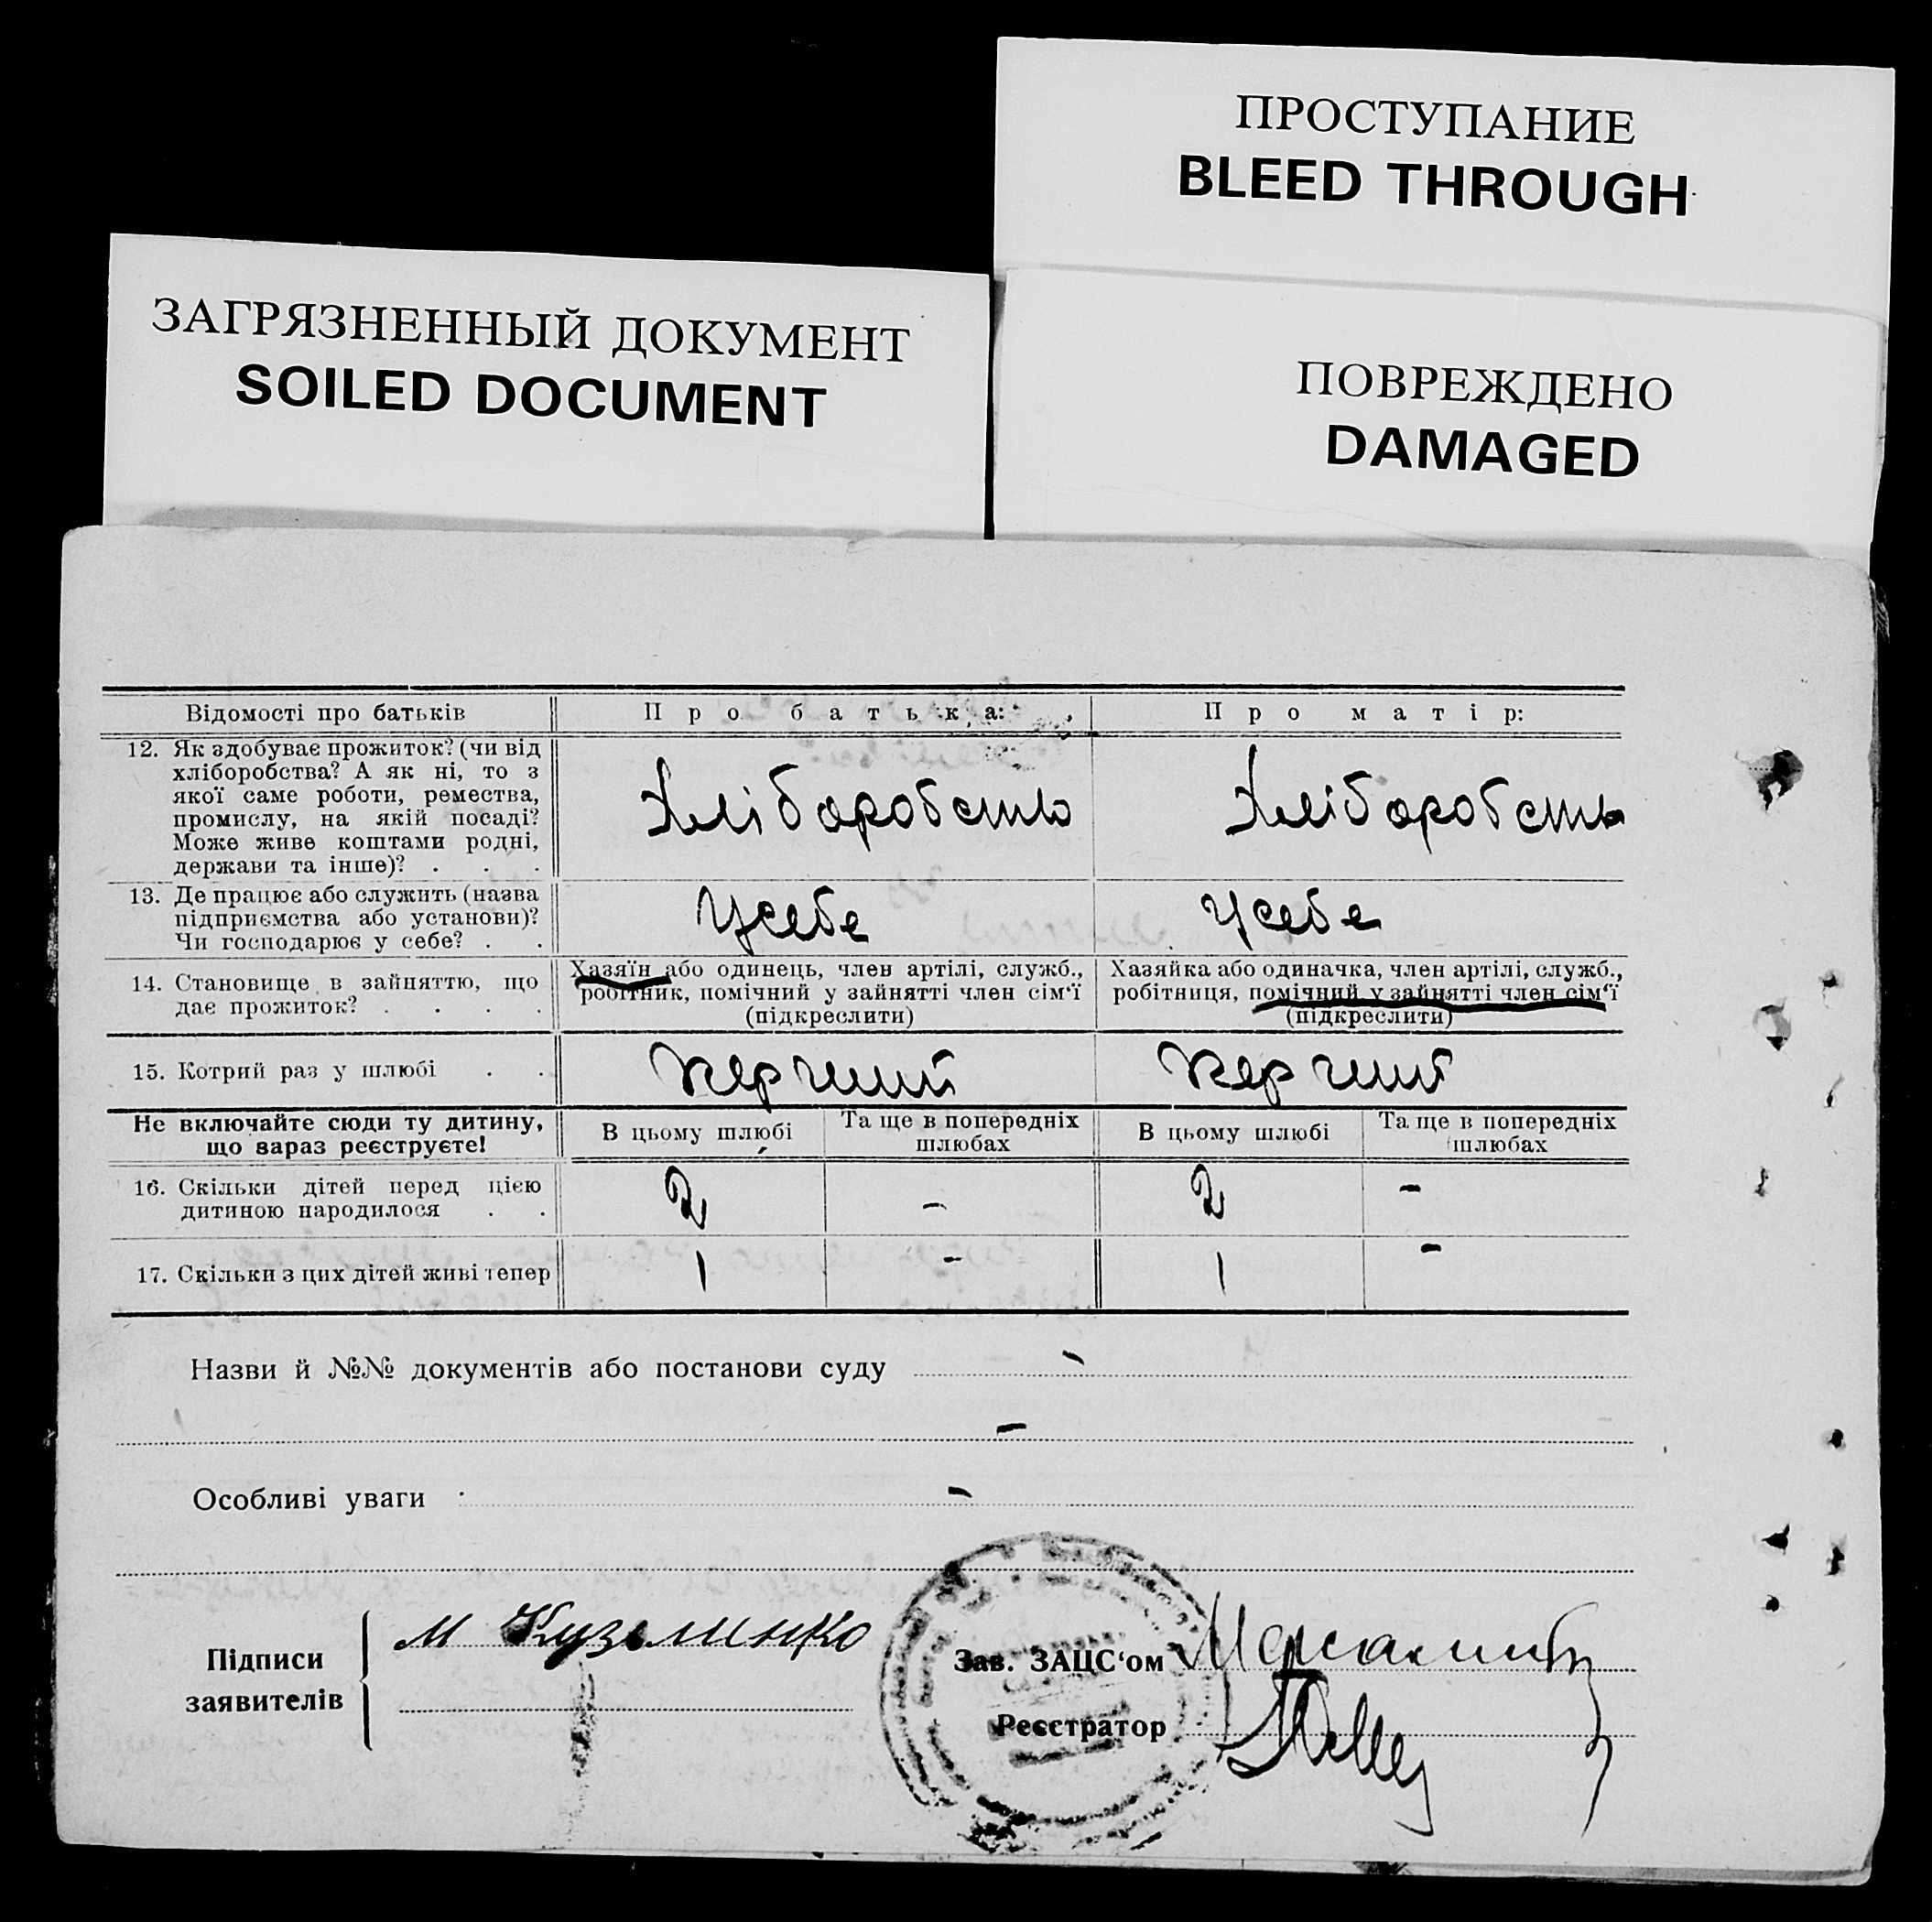 ПРОСТУПАНИЕ
BLEED THROUGH
ЗАГРЯЗНЕННЫЙ ДОКУМЕНТ
SOILED DOCUMENT
ПОВРЕЖДЕНО
DAMAGED
Відомості про батьків Про батька: Про матір:
12. Як здобуває прожиток? (чи від
хліборобства? А як ні, то з
якої саме роботи, ремества,
промислу, на якій посаді?
Може живе коштами родні,
держави та інше)? . . .
Хліборобство Хліборобство
13. Де працює або служить (назва
підприємства або установи)?
Чи господарює у себе? . .
Усебе Усебе
14. Становище в зайняттю, що
дає прожиток? . . . .
Хазяїн або одинець, член артілі, служб.,
робітник, помічний у зайнятті член сім‘ї
(підкреслити)
Хазяйка або одиначка, член артілі, служб.,
робітниця, помічний у зайнятті член сім‘ї
(підкреслити)
15. Котрий раз у шлюбі . . Перший Перший
Не включайте сюди ту дитину,
що зараз реєструєте!
В цьому шлюбі Та ще в попередніх
шлюбах
В цьому шлюбі Та ще в попередніх
шлюбах
16. Скільки дітей перед цією
дитиною народилося . .
2 - 2 -
17. Скільки з цих дітей живі тепер 1 - 1 -
Назви й №№ документів або постанови суду -
-
Особливі уваги -
Підписи
заявителів
М Кузьменко
Зав. ЗАЦС‘ом
Реєстратор